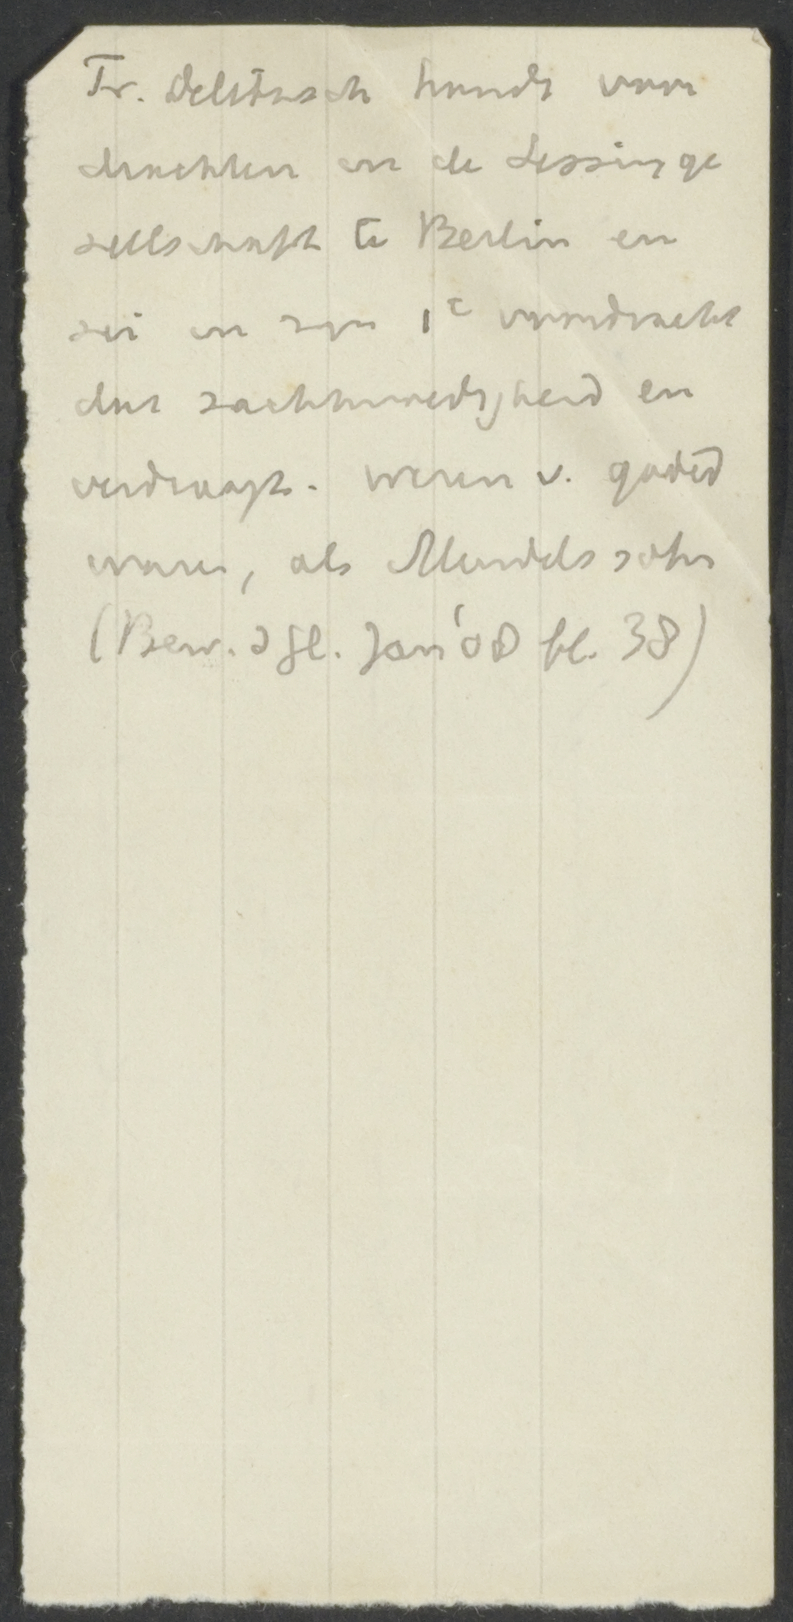 Fr. Delitzsch houdt voor
drachten in de Lessingge
sellschaft te Berlin en
zei in zijn 1e voordracht
dat zachtmoedigheid en
verdraagz. wezen v. godsd
waren, als Mendelssohn
(Bew. d gl. Jan '08 bl. 38)